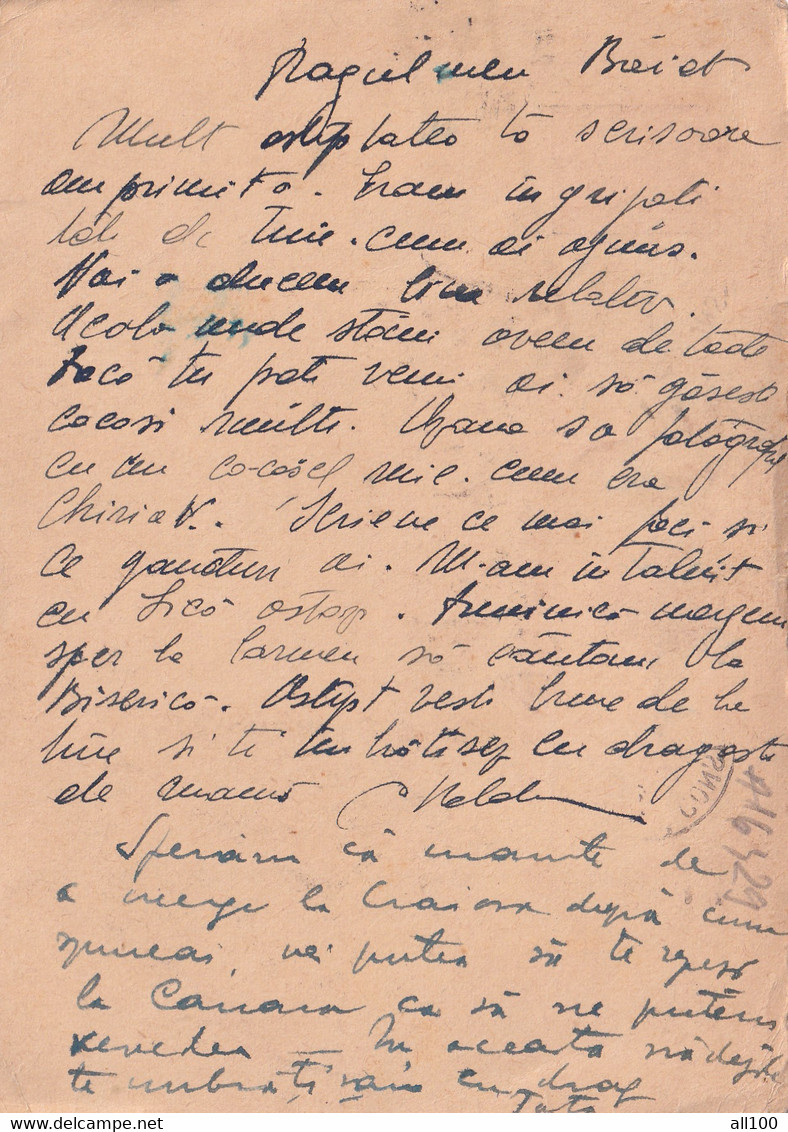 Dragul meu Băiet
Mult așteptatea ta scrisoare
am primit-o. Eram îngrijați
toți de tine. cum ai ajuns.
Noi o ducem bine relativ.
Acolo unde stăm avem de toate
Dacă tu poți veni ai să găsești
cocoși mulți. s-a fotografiat
cu un co-coșel mic. cum era
Chiriac. Scriene ce mai faci și
ce gânduri ai. M-am întâlnit
cu Sică astăzi. Duminică mergem
sper la Carmen să cântăm la
Biserică. Aștept vești bune de la
tine și te îmbrățișez cu dragoste
de mamă
Sperăm că înainte de
a merge la Craiova după cum
spuneai, vei putea să te repezi
la Canara ca să ne putem
revedea — În această nădejde
te îmbrățișăm cu drag
Tata
416321
all100